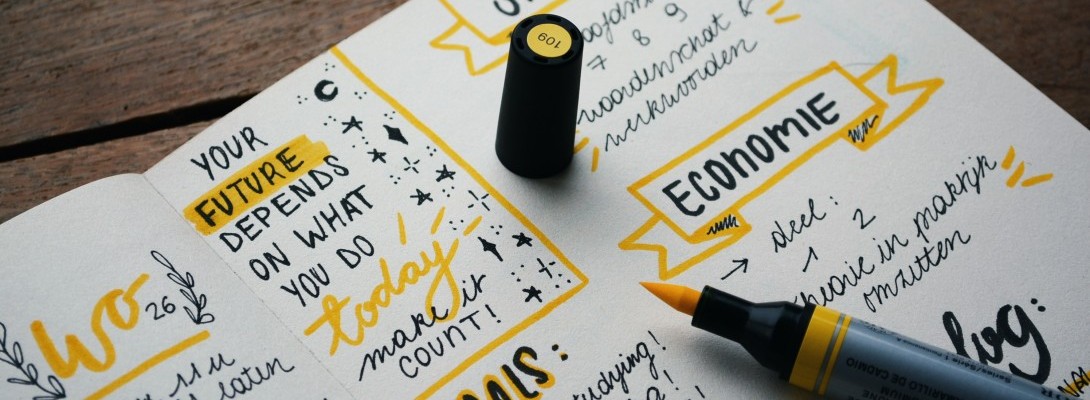 Wo
26
11u
laten
YOUR
FUTURE
DEPENDS
ON WHAT
YOU DO
today
make it
COUNT!
7 8 9
woordenschat
werkwoorden
109
ECONOMIE
→ deel:
1 2
theorie in praktijk
omzetten
studying!
AMARILLO DE CADMIO